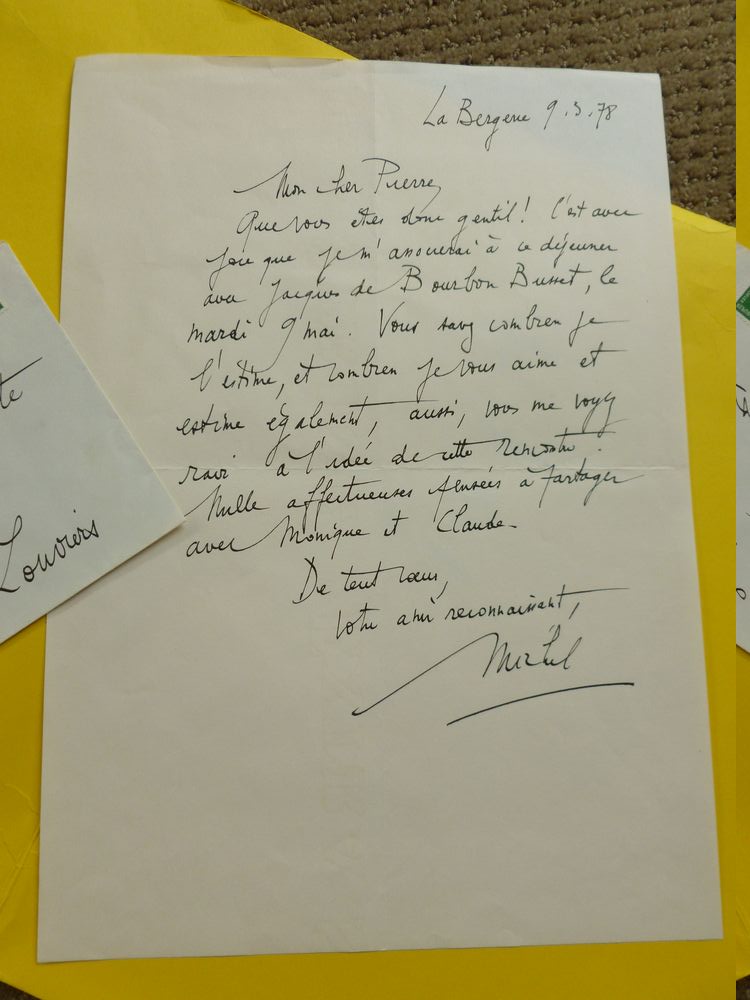 La Bergerie 9.3.78
Mon cher Pierre,
Que vous êtes donc gentil! C'est avec
joie que je m'associerai à ce déjeuner
avec Jacques de Bourbon Busset, le
mardi 9 mai. Vous savez combien je
l'estime, et combien je vous aime et
estime également, aussi, vous me voyez
ravi à l'idée de cette rencontre.
Mille affectueuses pensées à partager
avec Monique et Claude.
De tout cœur,
Votre ami reconnaissant,
Michel
te
Louviers